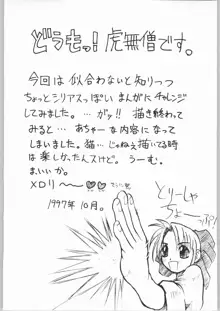 どうもっ! 虎無僧です。
今回は似合わないと知りつつ
ちょっとシリアスっぽいまんがにチャレンジ
してみました。… がッ!! 描き終わって
みると… あちゃーな内容になって
しまいました。猫…じゃねぇ描いてる時
は楽しかったんスけど。うーむ。
ま、いいか。
XDリ〜〜
1997年10月。
とりーしゃ
ちょーっぷ!